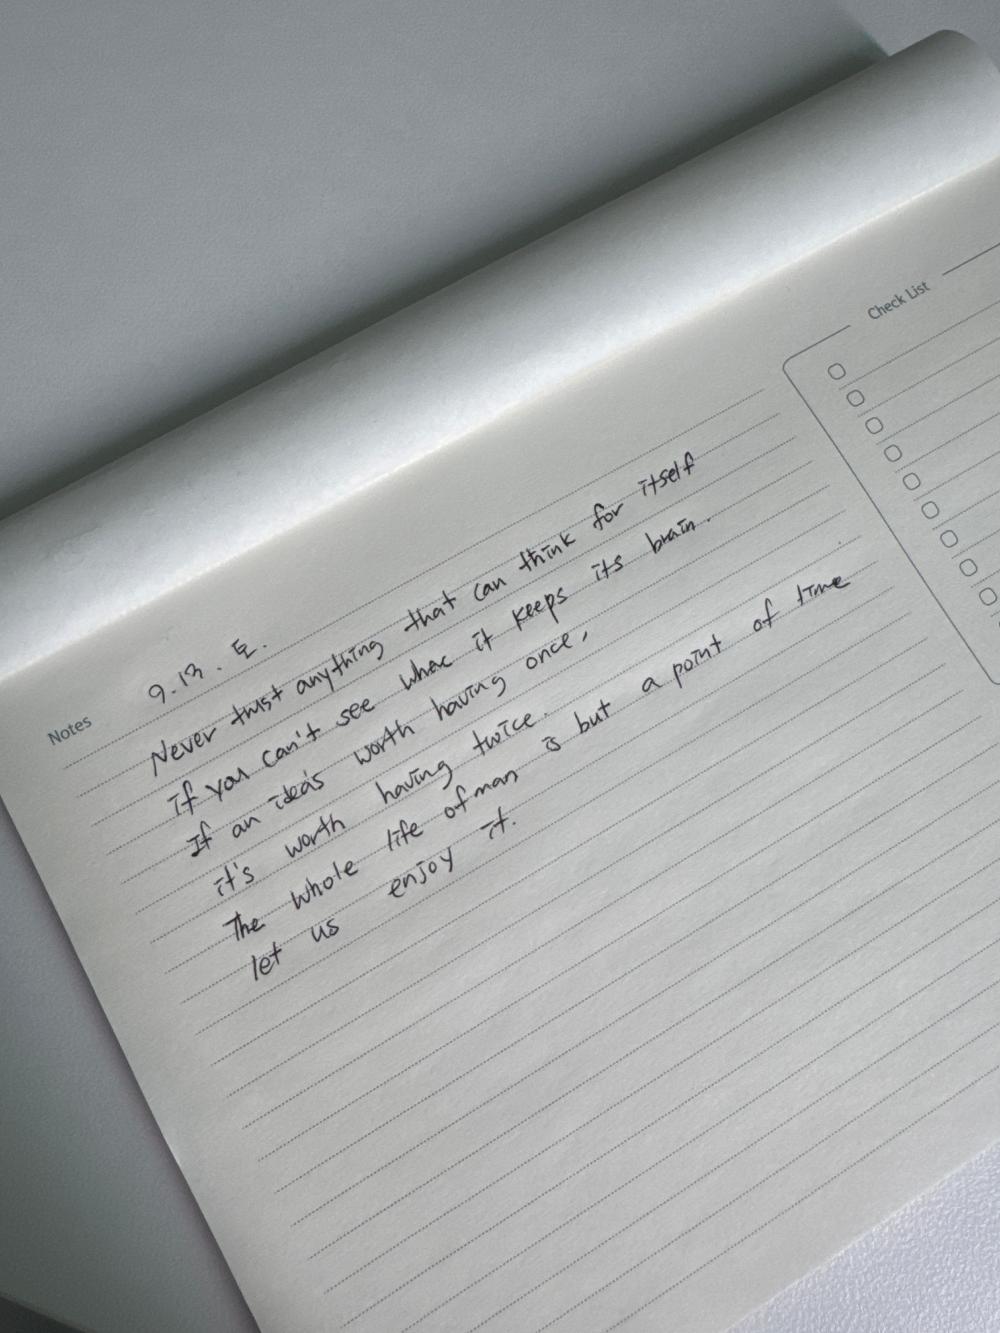 Notes
9.13. 토.
Never trust anything that can think for itself
if you can't see where it keeps its brain.
If an idea's worth having once,
it's worth having twice.
The whole life of man is but a point of time
let us enjoy it.
Check List